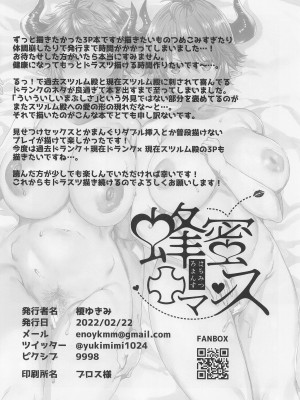 ずっと描きたかった3P本ですが描きたいものつめこみすぎたり
体調崩したりで発行まで時間がかかってしまいました…！
お待たせした方がいたら本当にすみません。
健康になってもっとドラスツ描ける時間作りたいです～…。
るっ！で過去スツルム殿と現在スツルム殿に刺されて喜んでる
ドランクのネタが良過ぎて本を出すまで至ってしまいました。
「ういういしいまぶしさ」という外見ではない部分を褒めてるのが
またスツルム殿への愛の形の現れだな～と…
それで描いたのがこんな本でとても申し訳なさ。
見せつけセックスとかまんぐりダブル挿入とか普段描けない
プレイが描けて楽しかったです！
今度は過去ドランク＋現在ドランク×現在スツルム殿の3Pも
描きたいですね…。
読んだ方が少しでも楽しんでいただければ幸いです！
これからもドラスツ描き続けるのでよろしくお願いします！
蜂蜜
はちみつ
ろまんす
ロマンス
発行者名 榎ゆきみ
発行日 2022/02/22
メール enoykmm@gmail.com
ツイッター @yukimimi1024
ピクシブ 9998
印刷所名 ブロス様
FANBOX